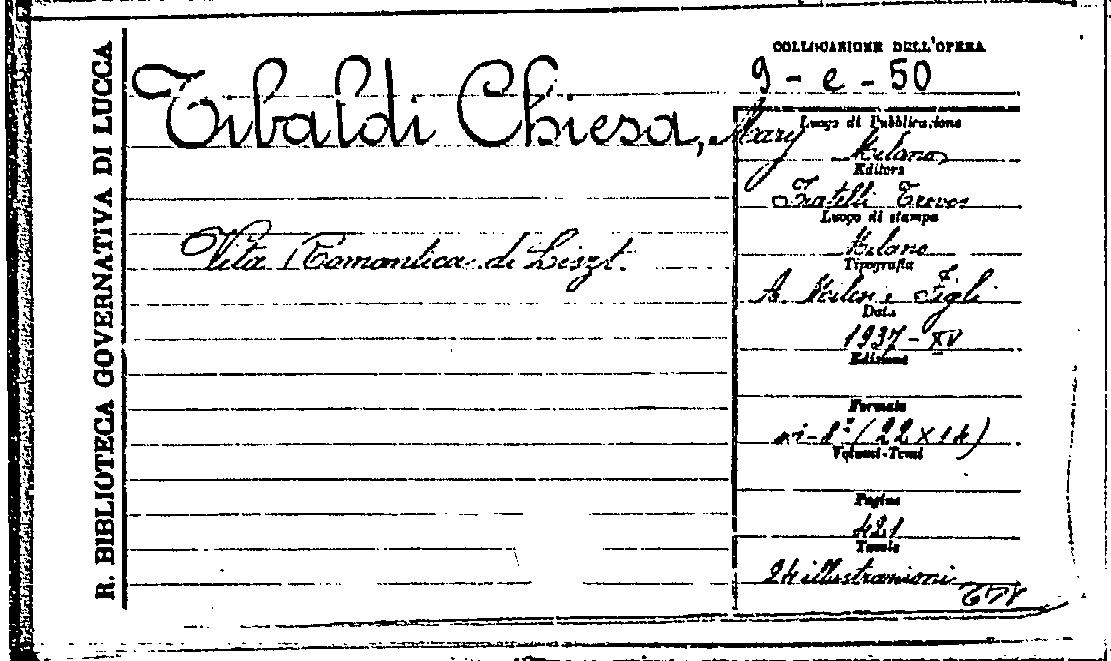 R. BIBLIOTECA GOVERNATIVA DI LUCCA
COLLOCAZIONE DELL'OPERA
9-e-50
Tibaldi Chiesa, Mary
Vita Romantica di Liszt.
Luogo di Pubblicazione
Milano
Editore
Fratelli Treves
Luogo di stampa
Milano
Tipografia
A. e Figli
Data
1937-XV
Edizione
Formato
in-8º (22x14)
Volumi-Tomi
Pagine
421
Tavole
24 illustrazioni